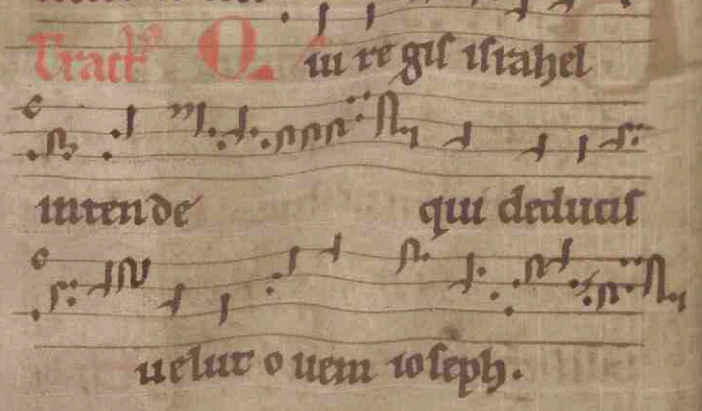 Tract̄ Qui regis israhel
intende qui deducis
uelut ouem ioseph.